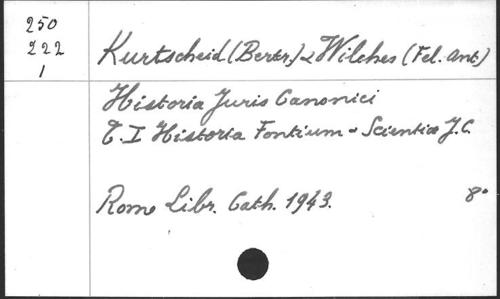 250
222
1
Kurtscheid (Bertr.) & Wilches (Fel. Ant)
Historia Juris Canonici
T. I Historia Fontium & Scientiae J.C.
Rome Libr. Cath. 1943. 8°